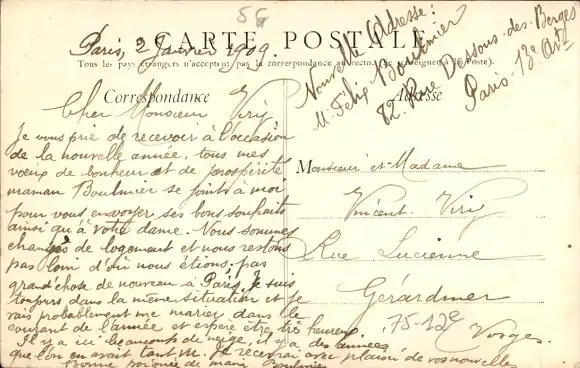 56
Paris, 2 Janvier 1909.
CARTE POSTALE
Tous les pays étrangers n'acceptent pas la correspondance au recto. (Se renseigner à la Poste).
Nouvelle Adresse:
M. Félix Boulmier
82. Rue Dessous-des-Berges
Paris-13e Art
Correspondance
Adresse
Cher Monsieur Viry
Je vous prie de recevoir à l'occasion
de la nouvelle année, tous mes
vœux de bonheur et de prospérité
maman Boulmier se joint à moi
pour vous envoyer ses bons souhaits
ainsi qu'à votre dame. Nous sommes
changés de logement et nous restons
pas loin d'où nous étions. pas
grand'chose de nouveau à Paris, Je suis
toujours dans la même situation et je
vais probablement me marier dans le
courant de l'année et espère être très heureux
Il y a ici beaucoup de neige, il y a des années
que l'on en avait tant vu. Je recevrai avec plaisir de vos nouvelles
Bonne poignée de main Boulmier
Monsieur et Madame
Vincent Viry
Rue Lucienne
Gérardmer
75-12e
Vosges.